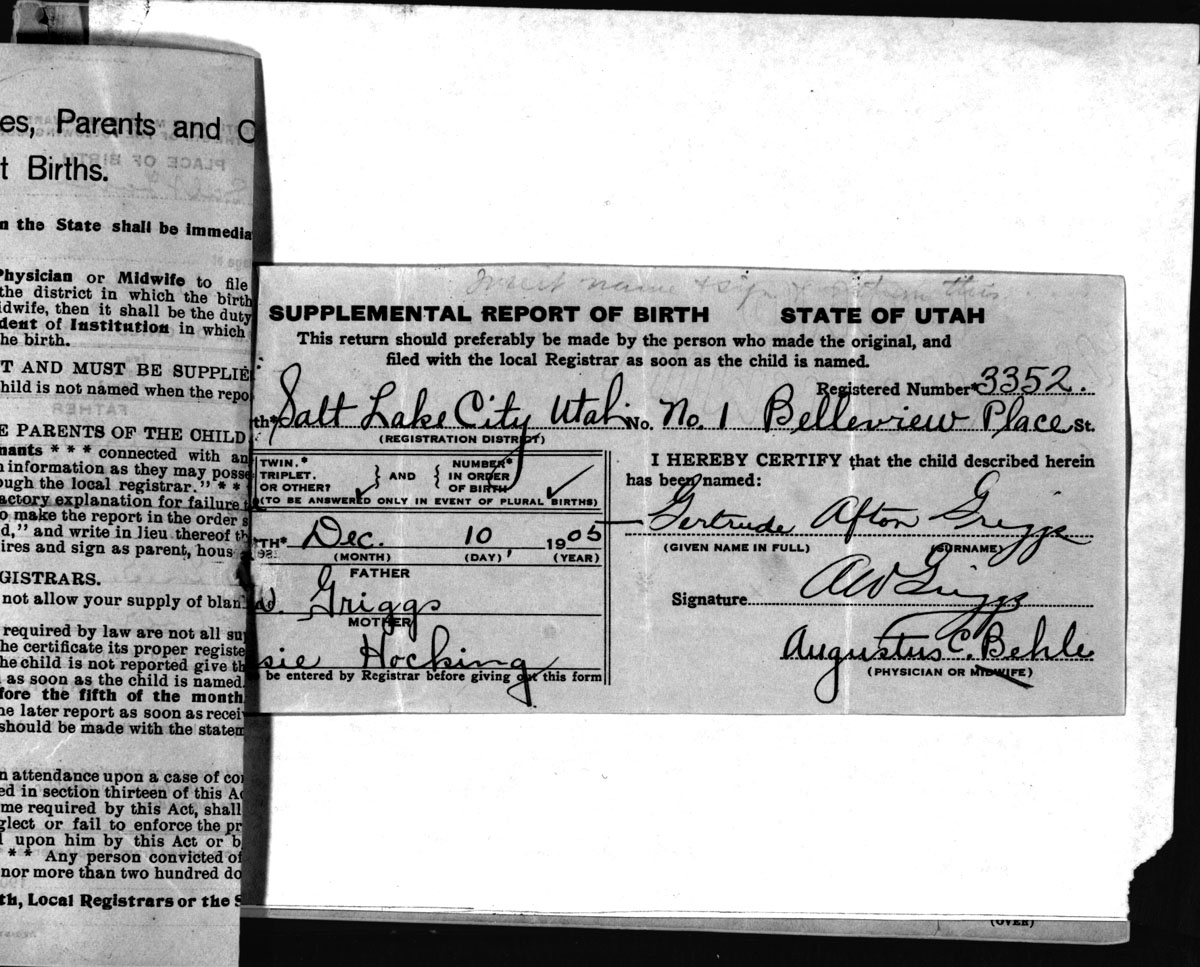 es, Parents and C
t Births.
n the State shall be immedia
Physician or Midwife to file
the district in which the birth
idwife, then it shall be the duty
dent of Institution in which
he birth.
T AND MUST BE SUPPLIE
hild is not named when the repo
E PARENTS OF THE CHILD
nants * * * connected with an
n information as they may posse
ough the local registrar." * *
actory explanation for failure t
o make the report in the order s
d," and write in lieu thereof th
ires and sign as parent, hous
GISTRARS.
not allow your supply of blan
required by law are not all su
he certificate its proper registe
he child is not reported give th
as soon as the child is named.
fore the fifth of the month
he later report as soon as recei
should be made with the statem
n attendance upon a case of co
ed in section thirteen of this A
me required by this Act, shall
glect or fail to enforce the pr
l upon him by this Act or b
* * Any person convicted of
nor more than two hundred do
th, Local Registrars or the S
PLACE OF BIRTH
FATHER
Insert name
this
SUPPLEMENTAL REPORT OF BIRTH STATE OF UTAH
This return should preferably be made by the person who made the original, and
filed with the local Registrar as soon as the child is named.
Registered Number* 3352.
th* Salt Lake City Utah No. No. 1 Belleview Place St.
(REGISTRATION DISTRICT)
TWIN.*
TRIPLET.
OR OTHER?
} AND {
NUMBER*
IN ORDER
OF BIRTH
(TO BE ANSWERED ONLY IN EVENT OF PLURAL BIRTHS)
TH* Dec. 10 1905
(MONTH) (DAY) (YEAR)
FATHER
W. Griggs
MOTHER
sie Hocking
be entered by Registrar before giving out this form
I HEREBY CERTIFY that the child described herein
has been named:
Gertrude Afton Griggs
(GIVEN NAME IN FULL) (SURNAME)
Signature AW Griggs
Augustus C. Behle
(PHYSICIAN OR MIDWIFE)
(OVER)